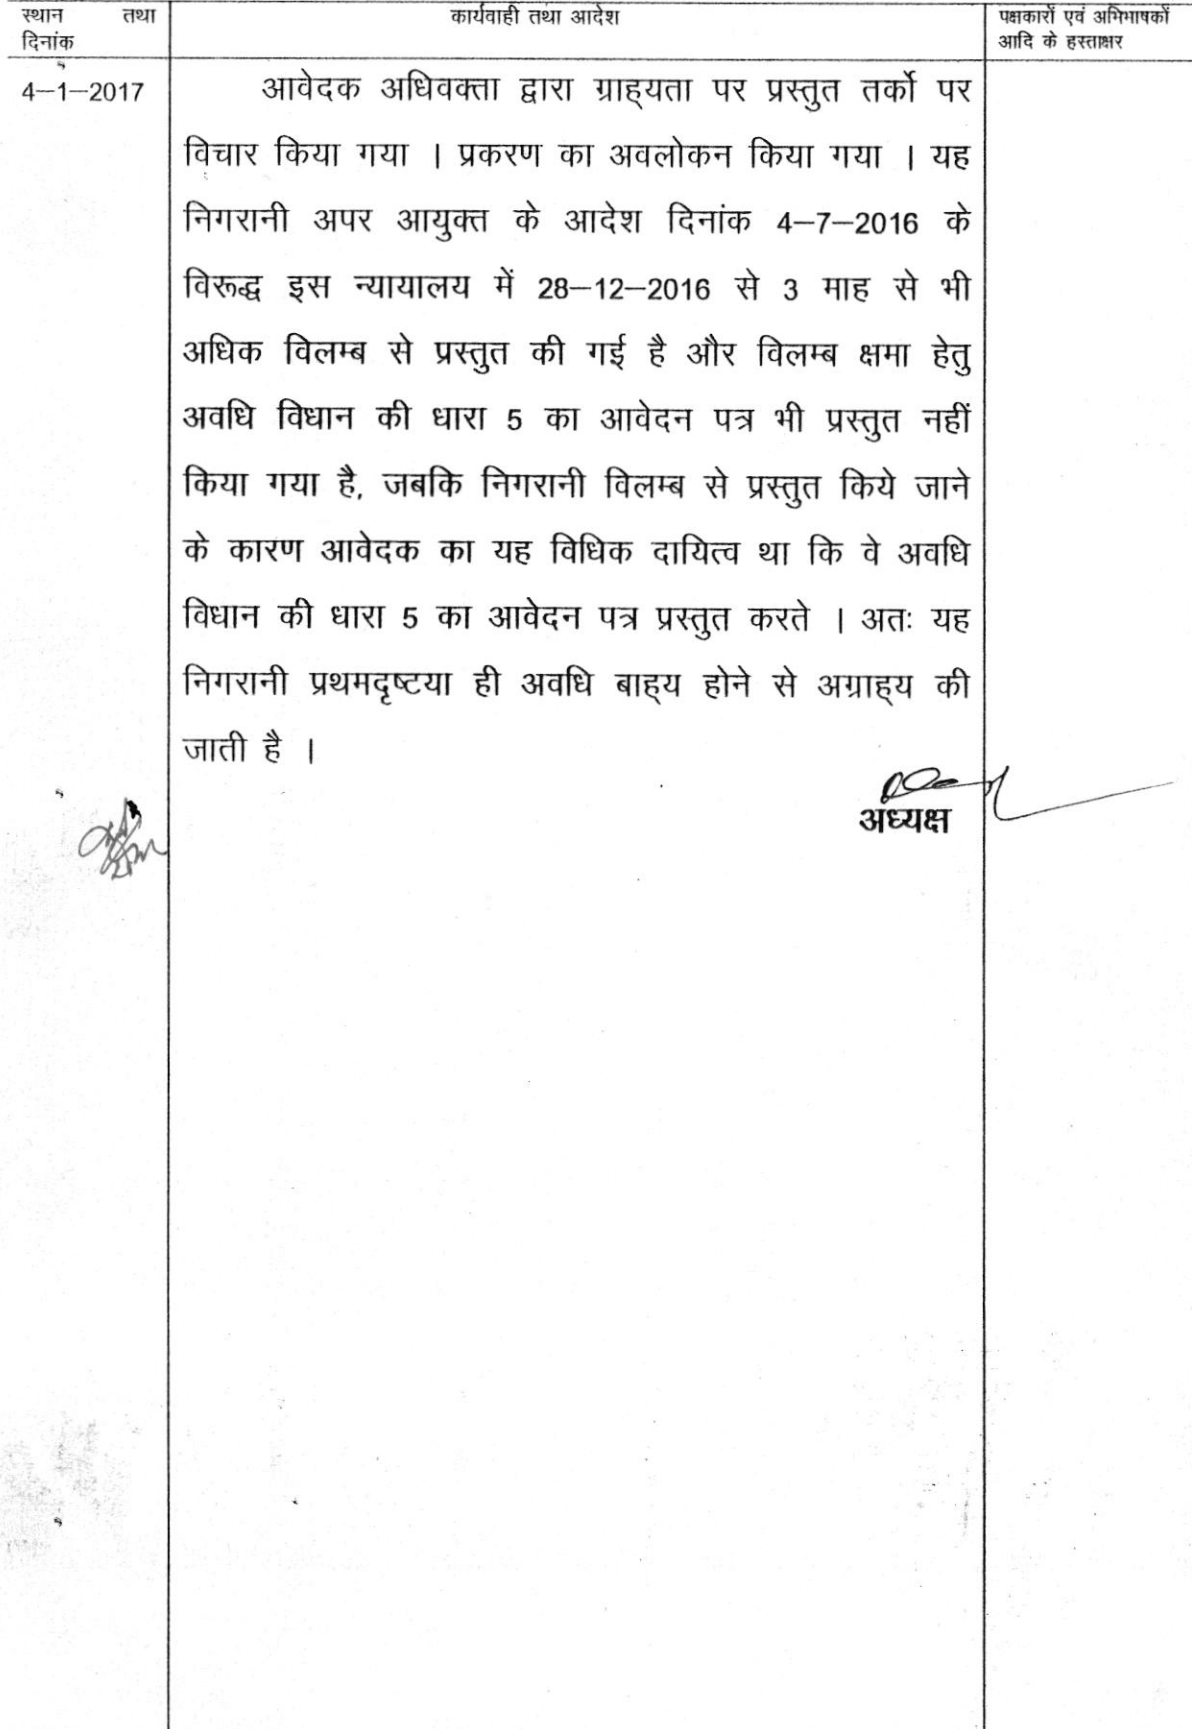 स्थान तथा दिनांक
कार्यवाही तथा आदेश
पक्षकारों एवं अभिभाषकों
आदि के हस्ताक्षर
4–1–2017
आवेदक अधिवक्ता द्वारा ग्राह्यता पर प्रस्तुत तर्को पर
विचार किया गया । प्रकरण का अवलोकन किया गया । यह
निगरानी अपर आयुक्त के आदेश दिनांक 4–7–2016 के
विरूद्ध इस न्यायालय में 28–12–2016 से 3 माह से भी
अधिक विलम्ब से प्रस्तुत की गई है और विलम्ब क्षमा हेतु
अवधि विधान की धारा 5 का आवेदन पत्र भी प्रस्तुत नहीं
किया गया है, जबकि निगरानी विलम्ब से प्रस्तुत किये जाने
के कारण आवेदक का यह विधिक दायित्व था कि वे अवधि
विधान की धारा 5 का आवेदन पत्र प्रस्तुत करते । अतः यह
निगरानी प्रथमदृष्टया ही अवधि बाह्य होने से अग्राह्य की
जाती है ।
अध्यक्ष